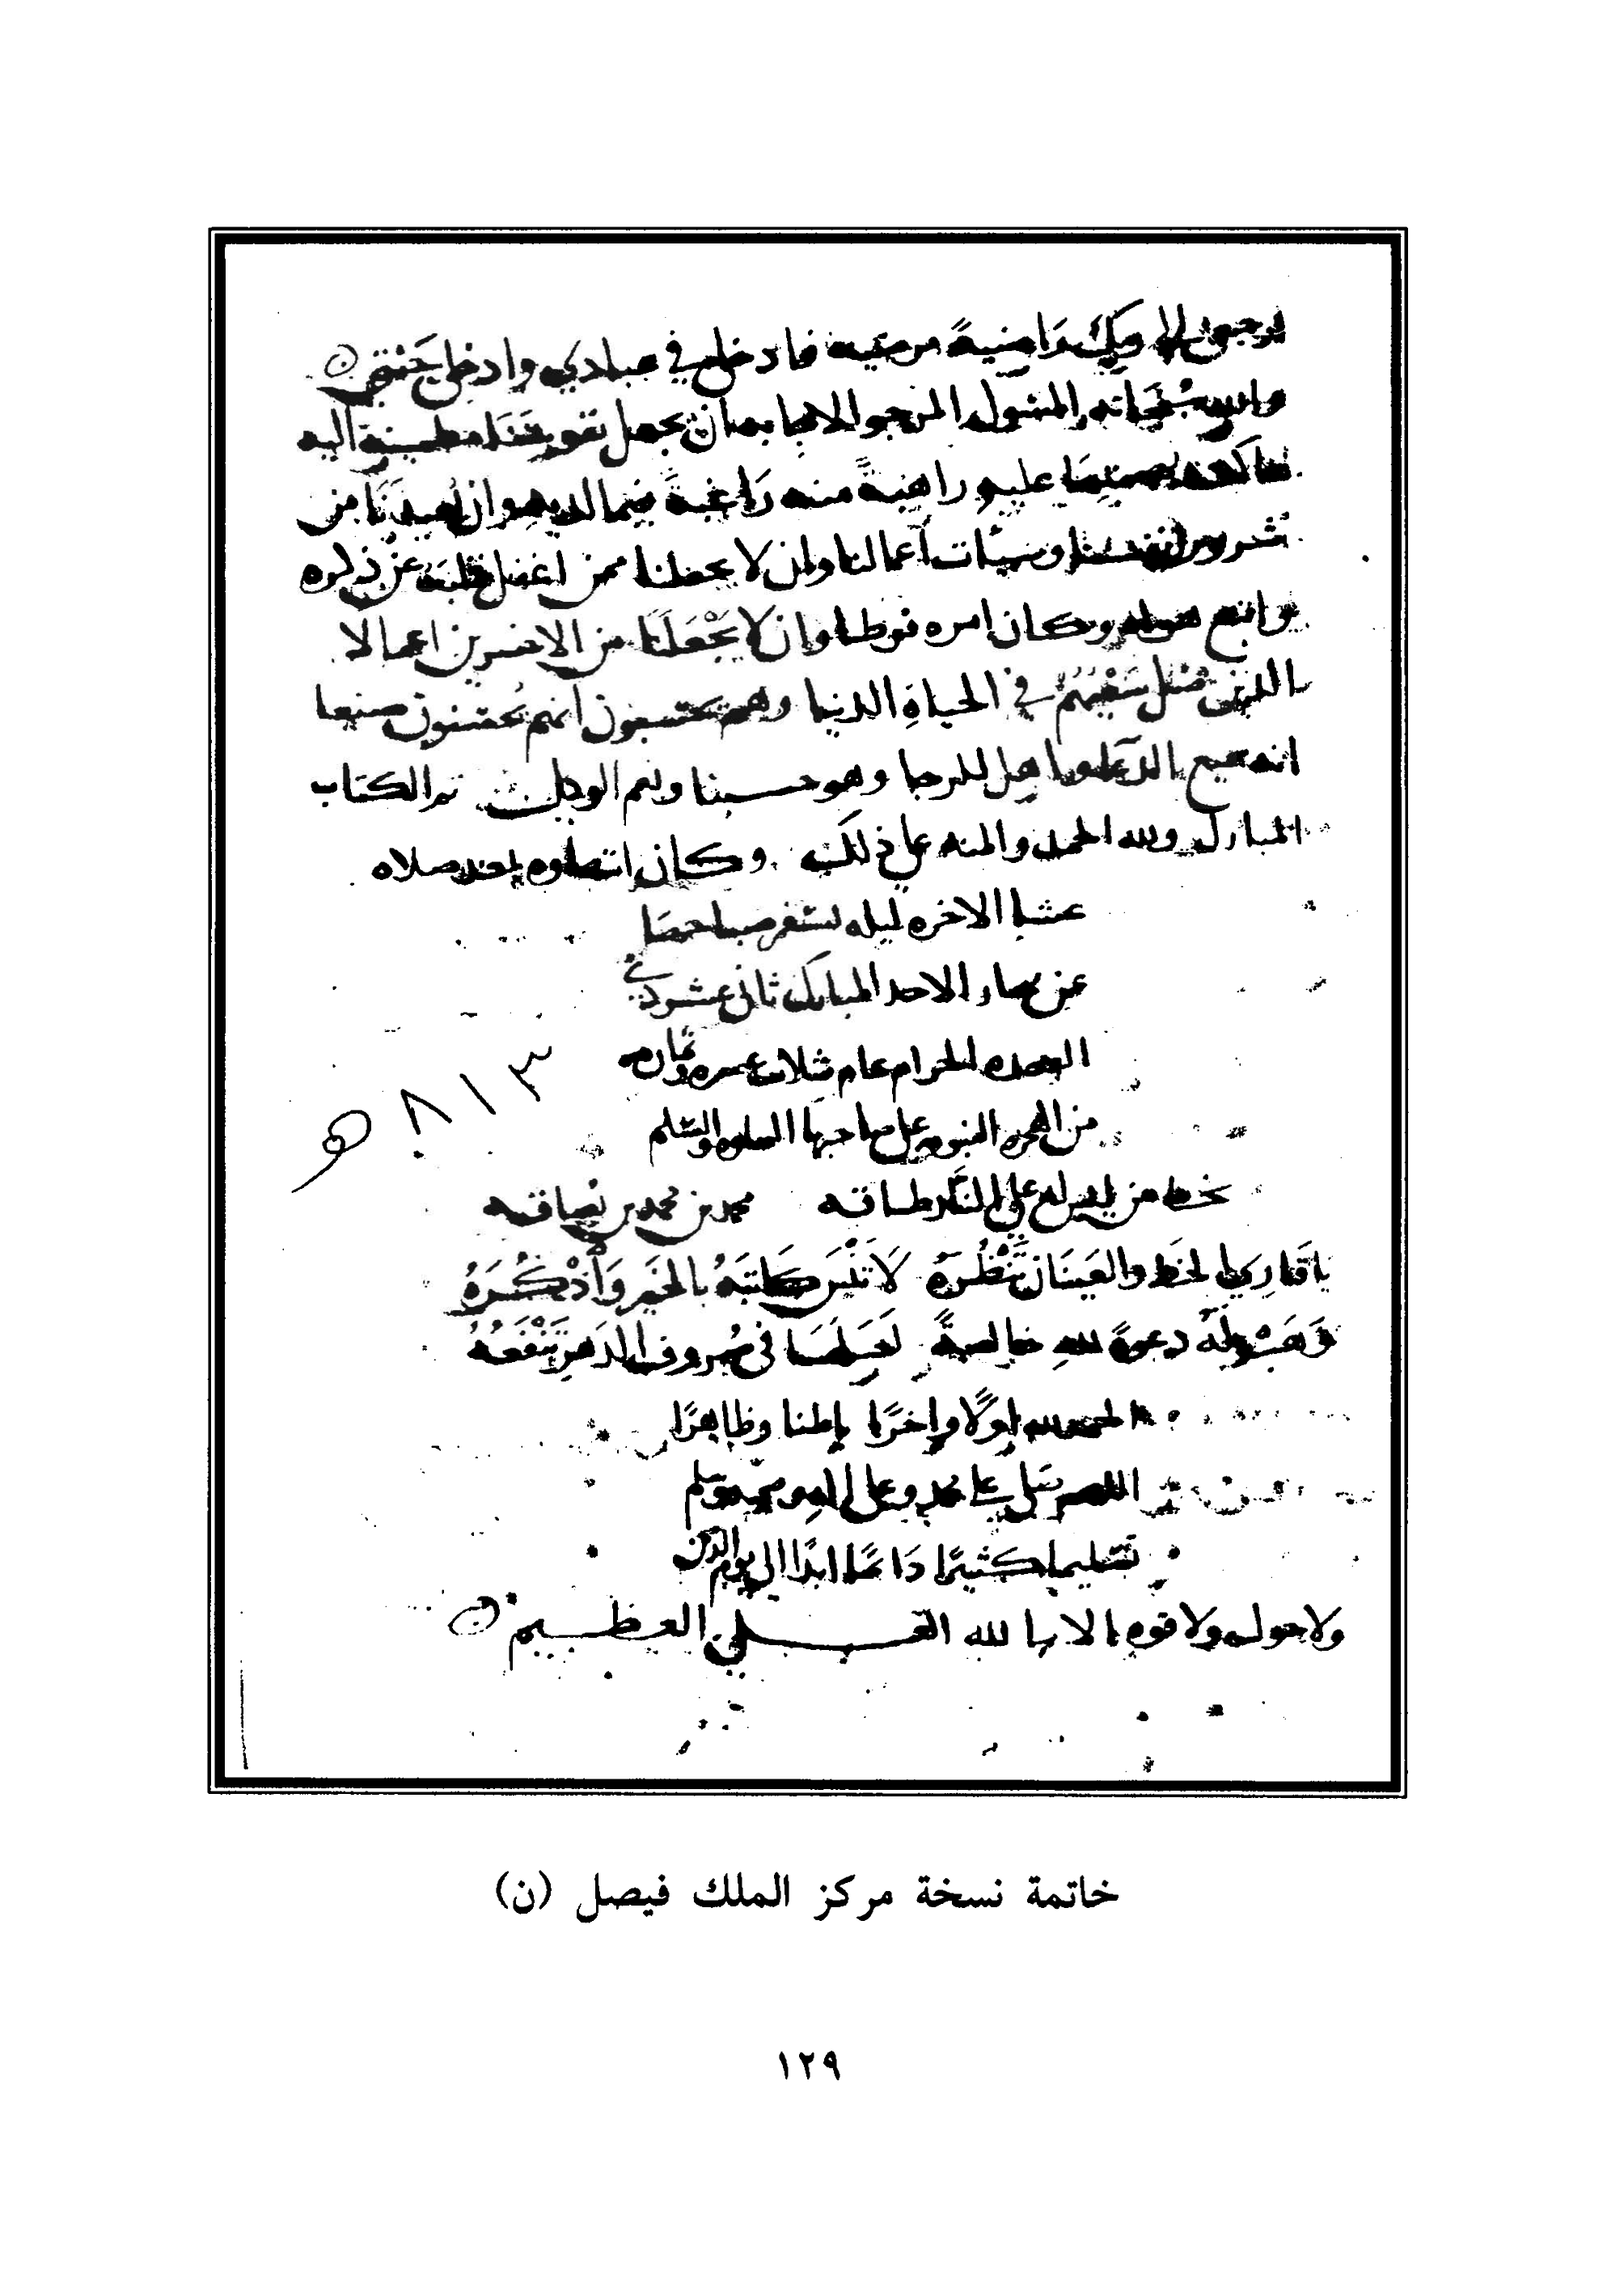 ارجعي الى ربك راضيةً مرضيه فادخلي في عبادي وادخلي جنتي
والله سُبحانه المسُول المرجو الاجابه ان يجعل نفوسنا مطمينة اليه
عاكفه بهمتها عليه راهبةً منه رَاغبةً فيما لديه وان يُعيذنَا من
شرور انفسنا وسيئات اعمالنا وان لا يجعلنا ممن اغفل قلبَهُ عن ذكره
واتبع هواه وكان امره فرطا وان لا يَجْعَلنَا من الاخسرين اعمالا
الذين ضل سَعْيهُمُ في الحياةِ الدنيا وهم يحسبون انهم يُحسنون صنعا
انه سميع الدعا واهل الرجا وهو حسبنا ونعم الوكيل تم الكتاب
المبارك ولله الحمد والمنه على ذلك وكان انتهاوه بعد صلاه
عشا الاخره ليله تسفر صباحها
عن نهار الاحد المبارك ثاني عشر ذي
القعده الحرام عام ثلاث عشره وثمان مه
من الهجره النبويه على صاحبها الصلوه والسلم
٨١٣ ه
بخط من ليس له على النار طاقه محمد بن محمد بن
يا قَارِي الخط والعَينَان تَنْظُرهُ لَا تَنْسَ كاتبَهُ بالخَير وَاُذْكُرَهُ
وَهَبْ لَهُ دعوةً للهِ خالصةً لَعَلهَا في صُروف الدَهرِ تَنْفَعُهُ
الحمد لله اولًا واخرًا باطنا وظاهرًا
اللهم صل على محمد وعلى اله وصحبه وسلم
تسليما كثيرًا دَائمًا ابدًا الى يوم الدين
ولا حول ولا قوه الا بالله العلي العظيم
خاتمة نسخة مركز الملك فيصل (ن)
١٢٩